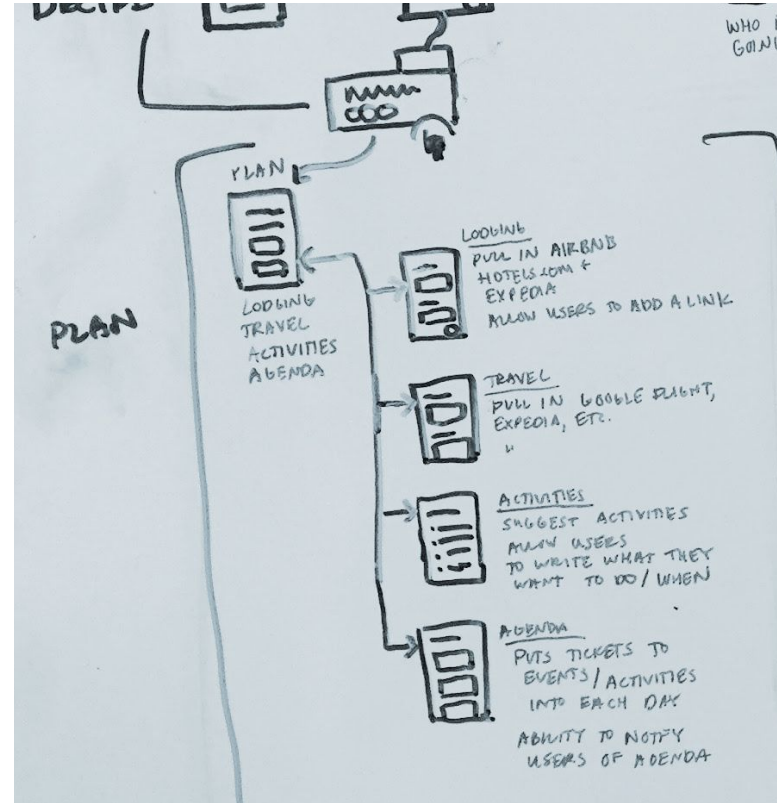 DECIDE
WHO
PLAN
PLAN
LODGING
TRAVEL
ACTIVITIES
AGENDA
LODGING
PULL IN AIRBNB
HOTELS.COM +
EXPEDIA
ALLOW USERS TO ADD A LINK
TRAVEL
PULL IN GOOGLE FLIGHT,
EXPEDIA, ETC.
"
ACTIVITIES
SUGGEST ACTIVITIES
ALLOW USERS
TO WRITE WHAT THEY
WANT TO DO / WHEN
AGENDA
PUTS TICKETS TO
EVENTS / ACTIVITIES
INTO EACH DAY
ABILITY TO NOTIFY
USERS OF AGENDA